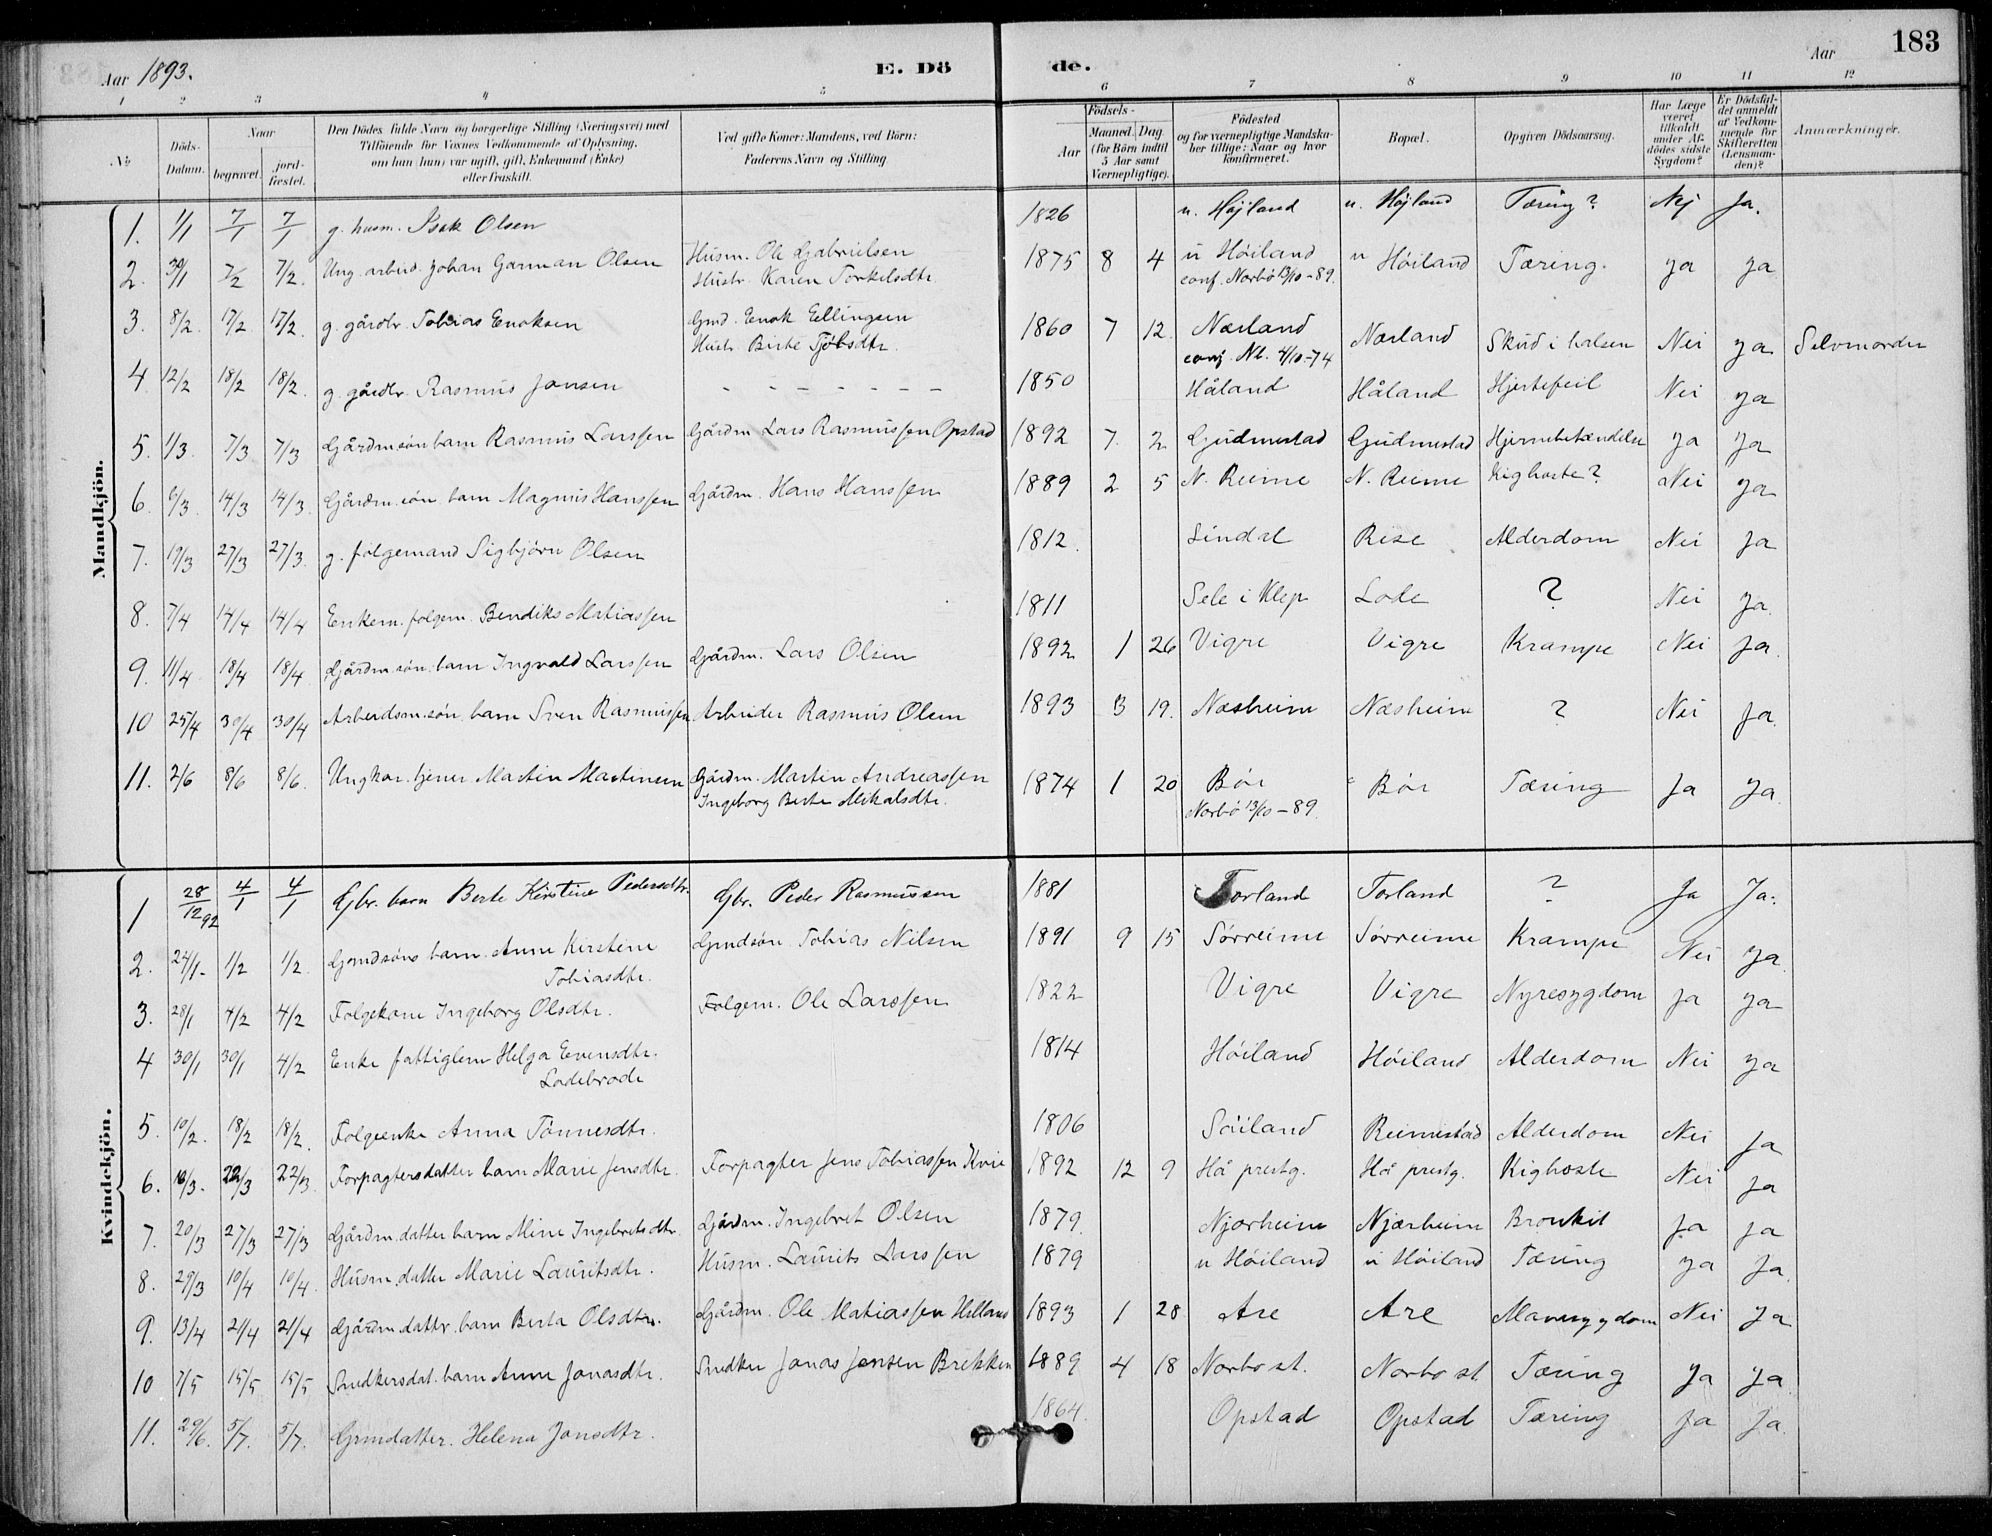 Aar 1893. E. Dö de. Aar 183
1 2 3 4 5 6 7 8 9 10 11 12
No. Döds-Datum. Naar begravet. jord-fæstet. Den Dödes fulde Navn og borgerlige Stilling (Næringsvei) med Tilföiende for Voxnes Vedkommende af Oplysning, om han (hun) var ugift, gift, Enkemand (Enke) eller fraskilt. Ved gifte Koner: Mandens, ved Börn: Faderens Navn og Stilling. Födsels- Aar Maaned. Dag. (for Börn indtil 5 Aar samt Værnepligtige). Födested og for værnepligtige Mandskaber tillige: Naar og hvor konfirmeret. Bopæl. Opgiven Dödsaarsag. Har Læge været tilkaldt under Afdödes sidste Sygdom? Er Dödsfaldet anmeldt af Vedkommende for Skifteretten (Lensmanden)? Anmærkninger.
Mandkjön.
1. 1/1 7/1 7/1 g. husm. Isak Olsen 1826 n. Højland n. Højland Tæring? Nej Ja.
2. 30/1 7/2 7/2. Ung. arbeid. Johan Garman Olsen Husm. Ole Gabrielsen 1875 8 4 n Höiland n Höiland Tæring. ja ja
Hustr. Karen Torkelsdtr. conf. Norbö 13/10-89.
3. 8/2. 17/2 17/2. g. gårdbr. Tobias Enoksen Gmd. Enok Ellingsen 1860 7 12. Nærland Nærland Skud i halsen Nei ja Selvmorder
Hustr. Birte Tjölsdtr. conf. Nb. 4/10-74
4 12/2 18/2 18/2. g. gårdbr. Rasmus Jonsen - - - - - - - 1850 Håland Håland Hjertefeil Nei ja
5. 1/3. 7/3 7/3 Gårdm. sön barn Rasmus Larssen Gårdm Lars Rasmussen Opstad 1892 7. 2 Gudmestad Gudmestad Hjernebetændelse ja ja
6. 6/3. 14/3 14/3. Gårdm. sön. barn Magnus Hanssen Gårdm. Hans Hanssen 1889 2 5 N. Reime N. Reime Kighoste? Nei ja
7. 19/3 27/3 27/3. g. folgemand Sigbjörn Olsen 1812. Lindal Rise Alderdom Nei Ja
8. 7/4 14/4 14/4 Enkem. folgem. Bendiks Matiassen 1811 Sele i Klep Lode ? Nei Ja.
9. 11/4 18/4 18/4 Gårdm. sön. barn Ingvald Larssen Gårdm. Lars Olsen 1892 1 26 Vigre Vigre Krampe Nei Ja.
10 25/4 30/4 30/4 Arbeidsm. sön. barn Sven Rasmussen Arbeider Rasmus Olsen 1893 3 19. Næsheim Næsheim ? Nei Ja.
11. 2/6 8/6 8/6. Ungkar. tjener Martin Martinsen Gårdm. Martin Andreassen 1874 1 20 Bör Bör Tæring Ja Ja.
Ingeborg Berte Mikalsdtr. Norbö 13/10-89.
Kvindekjön.
1 28/12 92 4/1 4/1 Gbr. barn Berte Kirstine Pedersdtr. Gbr. Peder Rasmussen 1881 Torland Torland ? Ja Ja.
2. 24/1- 1/2 1/2. Gmdsöns barn. Anne Kirstine Gmdsön. Tobias Nilsen 1891 9 15 Sörreime Sörreime Krampe Nei Ja.
Tobiasdtr.
3. 28/1 4/2 4/2 Folgekone Ingeborg Olsdtr. Folgem. Ole Larssen 1822 Vigre Vigre Nyresygdom ja ja
4 30/1 30/1 4/2 Enke fattiglem Helga Evensdtr. 1814 Höiland Höiland Alderdom Nei ja
Lodebrode
5. 10/2. 18/2 18/2. Folgeenke Anna Tönnesdtr. 1806 Söiland Reimestad Alderdom Nei Ja
6. 16/3. 22/3 22/3. Forpagtersdatter barn Marie Jensdtr. Forpagter Jens Tobiassen Kvie 1892 12 9 Hå prestg. Hå prestg. Kighoste Nei Ja
7. 20/3 27/3 27/3 Gårdm. datter barn Mine Ingebretsdtr. Gårdm. Ingebret Olsen 1879. Njærheim Njærheim Bronkit Ja Ja
8. 29/3 10/4 10/4. Husm. datter Marie Lauritsdtr. Husm. Laurits Larssen 1879 n Höiland n Höiland Tæring ja Ja.
9. 13/4 21/4 21/4 Gårdm. dattr. barn Berta Olsdtr. Gårdm. Ole Matiassen Helland 1893 1 28 Are Are Mavesygdom Nei Ja
10 7/5 15/5 15/5 Snedkersdat. barn Anne Jonasdtr. Snedker Jonas Jensen Brekken 1889 4 18 Norbo st. Norbo st. Tæring Ja Ja
11. 29/6. 5/7. 5/7. Gmndatter. Helena Jonsdtr. 1864. Opstad Opstad Tæring Ja Ja.